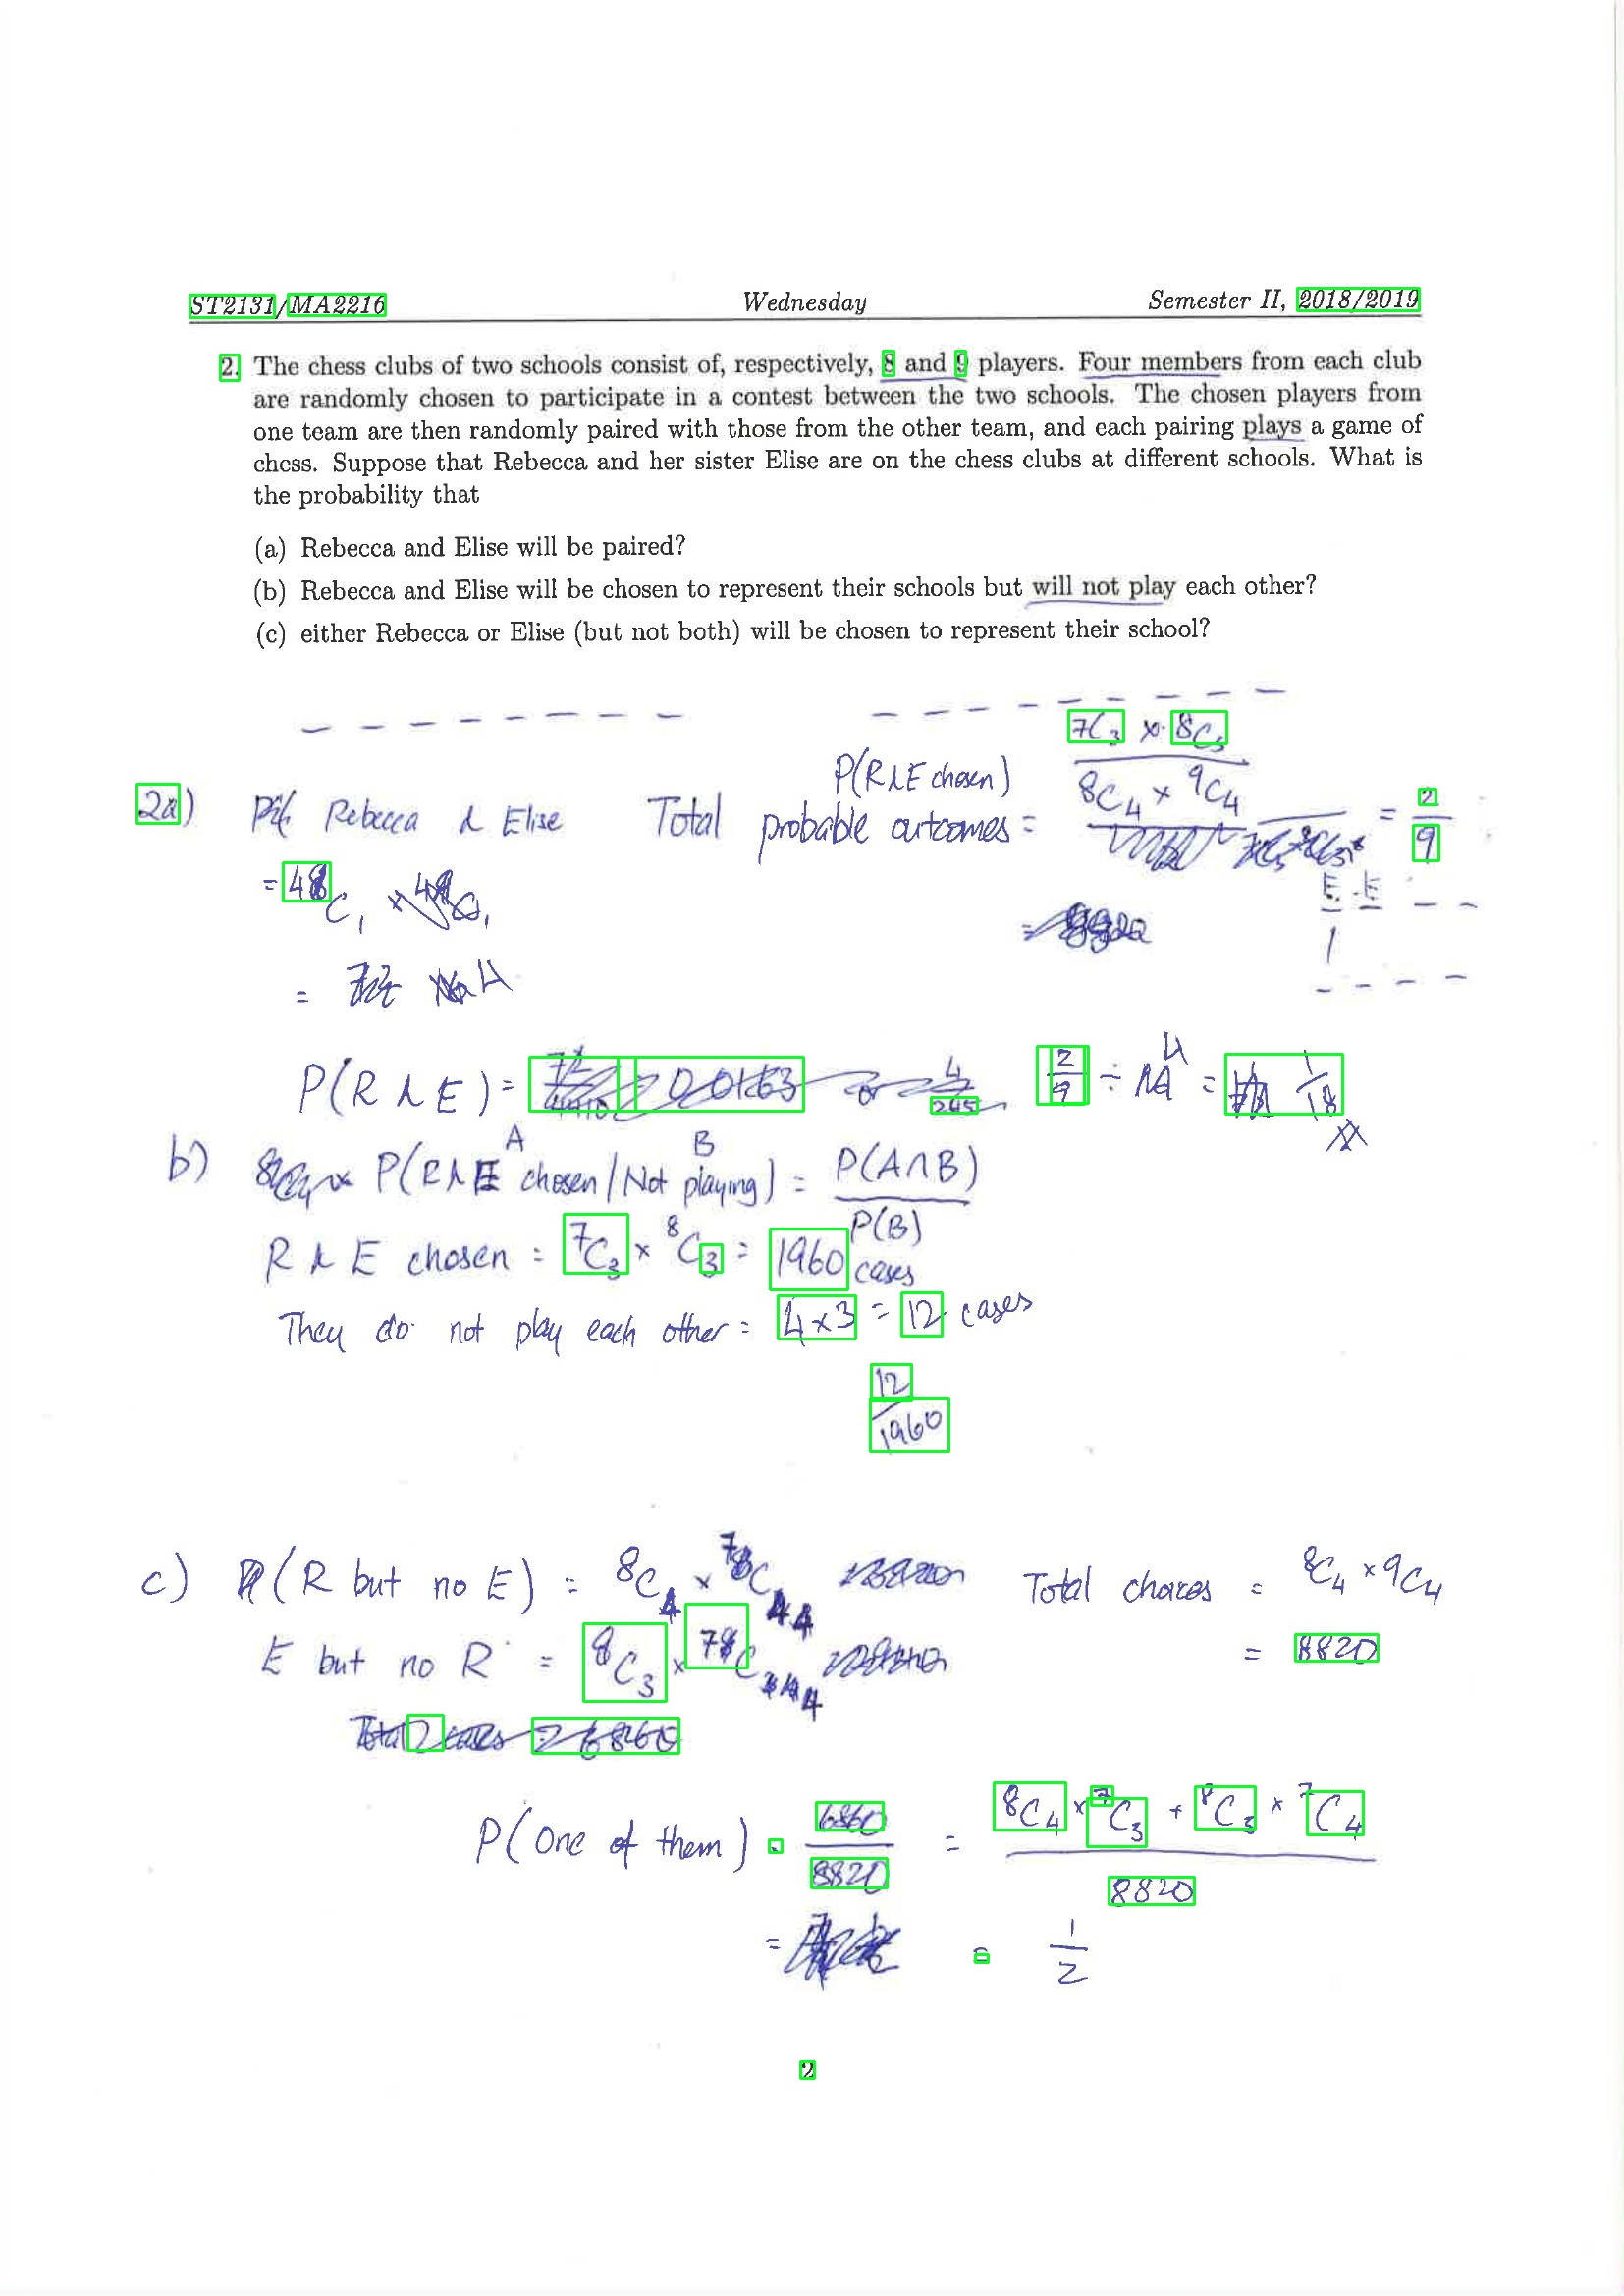 ST2131/MA2216 Wednesday Semester II, 2018/2019
2. The chess clubs of two schools consist of, respectively, 8 and 9 players. Four members from each club
are randomly chosen to participate in a contest between the two schools. The chosen players from
one team are then randomly paired with those from the other team, and each pairing plays a game of
chess. Suppose that Rebecca and her sister Elise are on the chess clubs at different schools. What is
the probability that
(a) Rebecca and Elise will be paired?
(b) Rebecca and Elise will be chosen to represent their schools but will not play each other?
(c) either Rebecca or Elise (but not both) will be chosen to represent their school?
7C3 × 8C3
P(R & E chosen) 8C4 × 9C4
2a) Rebecca & Elise Total probable outcomes = = 2/9
E E
P(R & E) = 2/9 ÷ 4 = 1/18
A B
b) P(R & E chosen / Not playing) = P(A∩B)
P(B)
R & E chosen = 7C3 × 8C3 = 1960 cases
They do not play each other = 4×3 = 12 cases
12
1960
c) P(R but no E) = 8C4 × C4 Total choices = 8C4 × 9C4
E but no R = 8C3 × 7C4 = 8820
P(one of them) = 6860/8820 = 8C4 × 7C3 + 8C3 × 7C4
8820
= 1/2
2